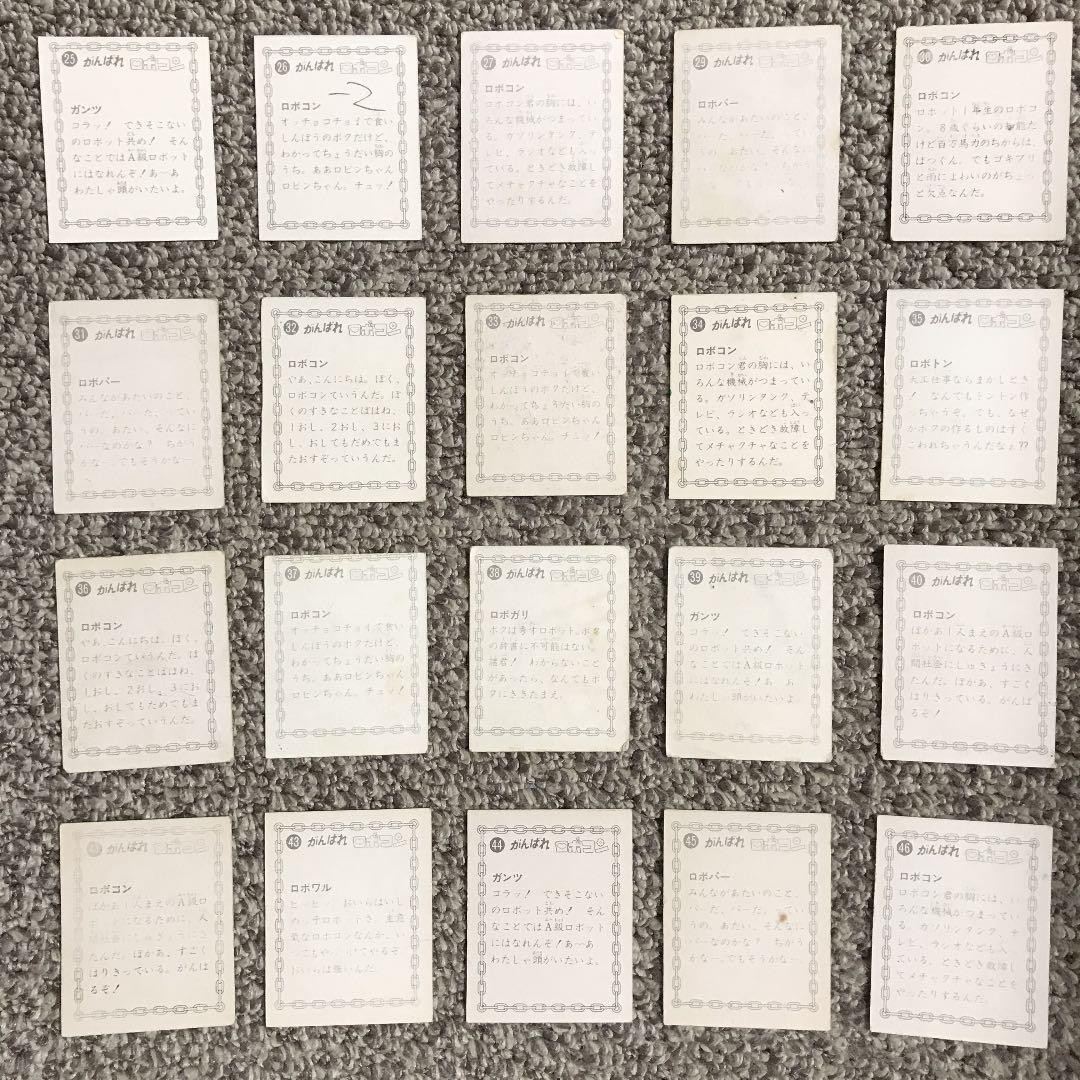 25 がんばれ ロボコン
ガンツ
コラッ! できそこない
のロボット共め! そん
なことではA級ロボット
にはなれんぞ! あーあ
わたしゃ頭がいたいよ。
26 がんばれ ロボコン
ロボコン
オッチョコチョイで食い
しんぼうのボクだけど、
わかってちょうだい胸の
うち。ああロビンちゃん
ロビンちゃん。チュッ!
27 がんばれ ロボコン
ロボコン
ロボコン君の胸には、い
ろんな機械がつまってい
る。ガソリンタンク、テ
レビ、ラジオなども入っ
ている。ときどき故障し
てメチャクチャなことを
やったりするんだ。
29 がんばれ ロボコン
ロボパー
みんながあたいのこと、
がんばれ ロボコン
ロボコン
ロボット1年生のロボコ
ン。8歳ぐらいの知能だ
けど百万馬力のちからは
ばつぐん。でもゴキブリ
と雨によわいのがちょっ
と欠点なんだ。
31 がんばれ ロボコン
ロボパー
みんながあたいのこと、
うの。あたい、そんなに
ーなのかな? ちがう
かな…。でもそうかな…
32 がんばれ ロボコン
ロボコン
やぁ、こんにちは。ぼく、
ロボコンていうんだ。ぼ
くのすきなことばはね、
1おし、2おし、3にお
し、おしてもだめでもま
たおすぞっていうんだ。
33 がんばれ ロボコン
ロボコン
オッチョコチョイで食い
しんぼうのボクだけど、
わかってちょうだい胸の
うち。ああロビンちゃん
ロビンちゃん。チュッ!
34 がんばれ ロボコン
ロボコン
ロボコン君の胸には、い
ろんな機械がつまってい
る。ガソリンタンク、テ
レビ、ラジオなども入っ
ている。ときどき故障し
てメチャクチャなことを
やったりするんだ。
35 がんばれ ロボコン
ロボトン
大工仕事ならまかしとき
! なんでもトントン作
っちゃうぞ。でも、なぜ
かボクの作るものはすぐ
こわれちゃうんだなぁ??
36 がんばれ ロボコン
ロボコン
やぁ、こんにちは。ぼく、
ロボコンていうんだ。ぼ
くのすきなことばはね、
1おし、2おし、3にお
し、おしてもだめでもま
たおすぞっていうんだ。
37 がんばれ ロボコン
ロボコン
オッチョコチョイで食い
しんぼうのボクだけど、
わかってちょうだい胸の
うち。ああロビンちゃん
ロビンちゃん。チュッ!
38 がんばれ ロボコン
ロボガリ
ボクは秀才ロボット。ボク
の辞書に不可能はない。
諸君! わからないこと
があったら、なんでもボ
クにききたまえ。
39 がんばれ ロボコン
ガンツ
コラッ! できそこない
のロボット共め! そん
なことではA級ロボット
にはなれんぞ! あ あ
わたしゃ頭がいたいよ。
40 がんばれ ロボコン
ロボコン
ぼかあ1人まえのA級ロ
ボットになるために、人
間社会にしゅぎょうにき
たんだ。ぼかあ、すごく
はりきっている。がんば
るぞ!
41 がんばれ ロボコン
ロボコン
ぼかあ1人まえのA級ロ
ボットになるために、人
間社会にしゅぎょうにき
たんだ。ぼかあ、すごく
はりきっている。がんば
るぞ!
43 がんばれ ロボコン
ロボワル
ヒッヒッ、おいらはいじ
生意
気なロボコンなんか、い
つもやっつけてやるぞ
おいらは強いんだ。
44 がんばれ ロボコン
ガンツ
コラッ! できそこない
のロボット共め! そん
なことではA級ロボット
にはなれんぞ! あーあ
わたしゃ頭がいたいよ。
45 がんばれ ロボコン
ロボパー
みんながあたいのこと、
うの。あたい、そんなに
パーなのかな? ちがう
かな…。でもそうかな…
46 がんばれ ロボコン
ロボコン
ロボコン君の胸には、い
ろんな機械がつまってい
る。ガソリンタンク、テ
レビ、ラジオなども入っ
ている。ときどき故障し
てメチャクチャなことを
やったりするんだ。